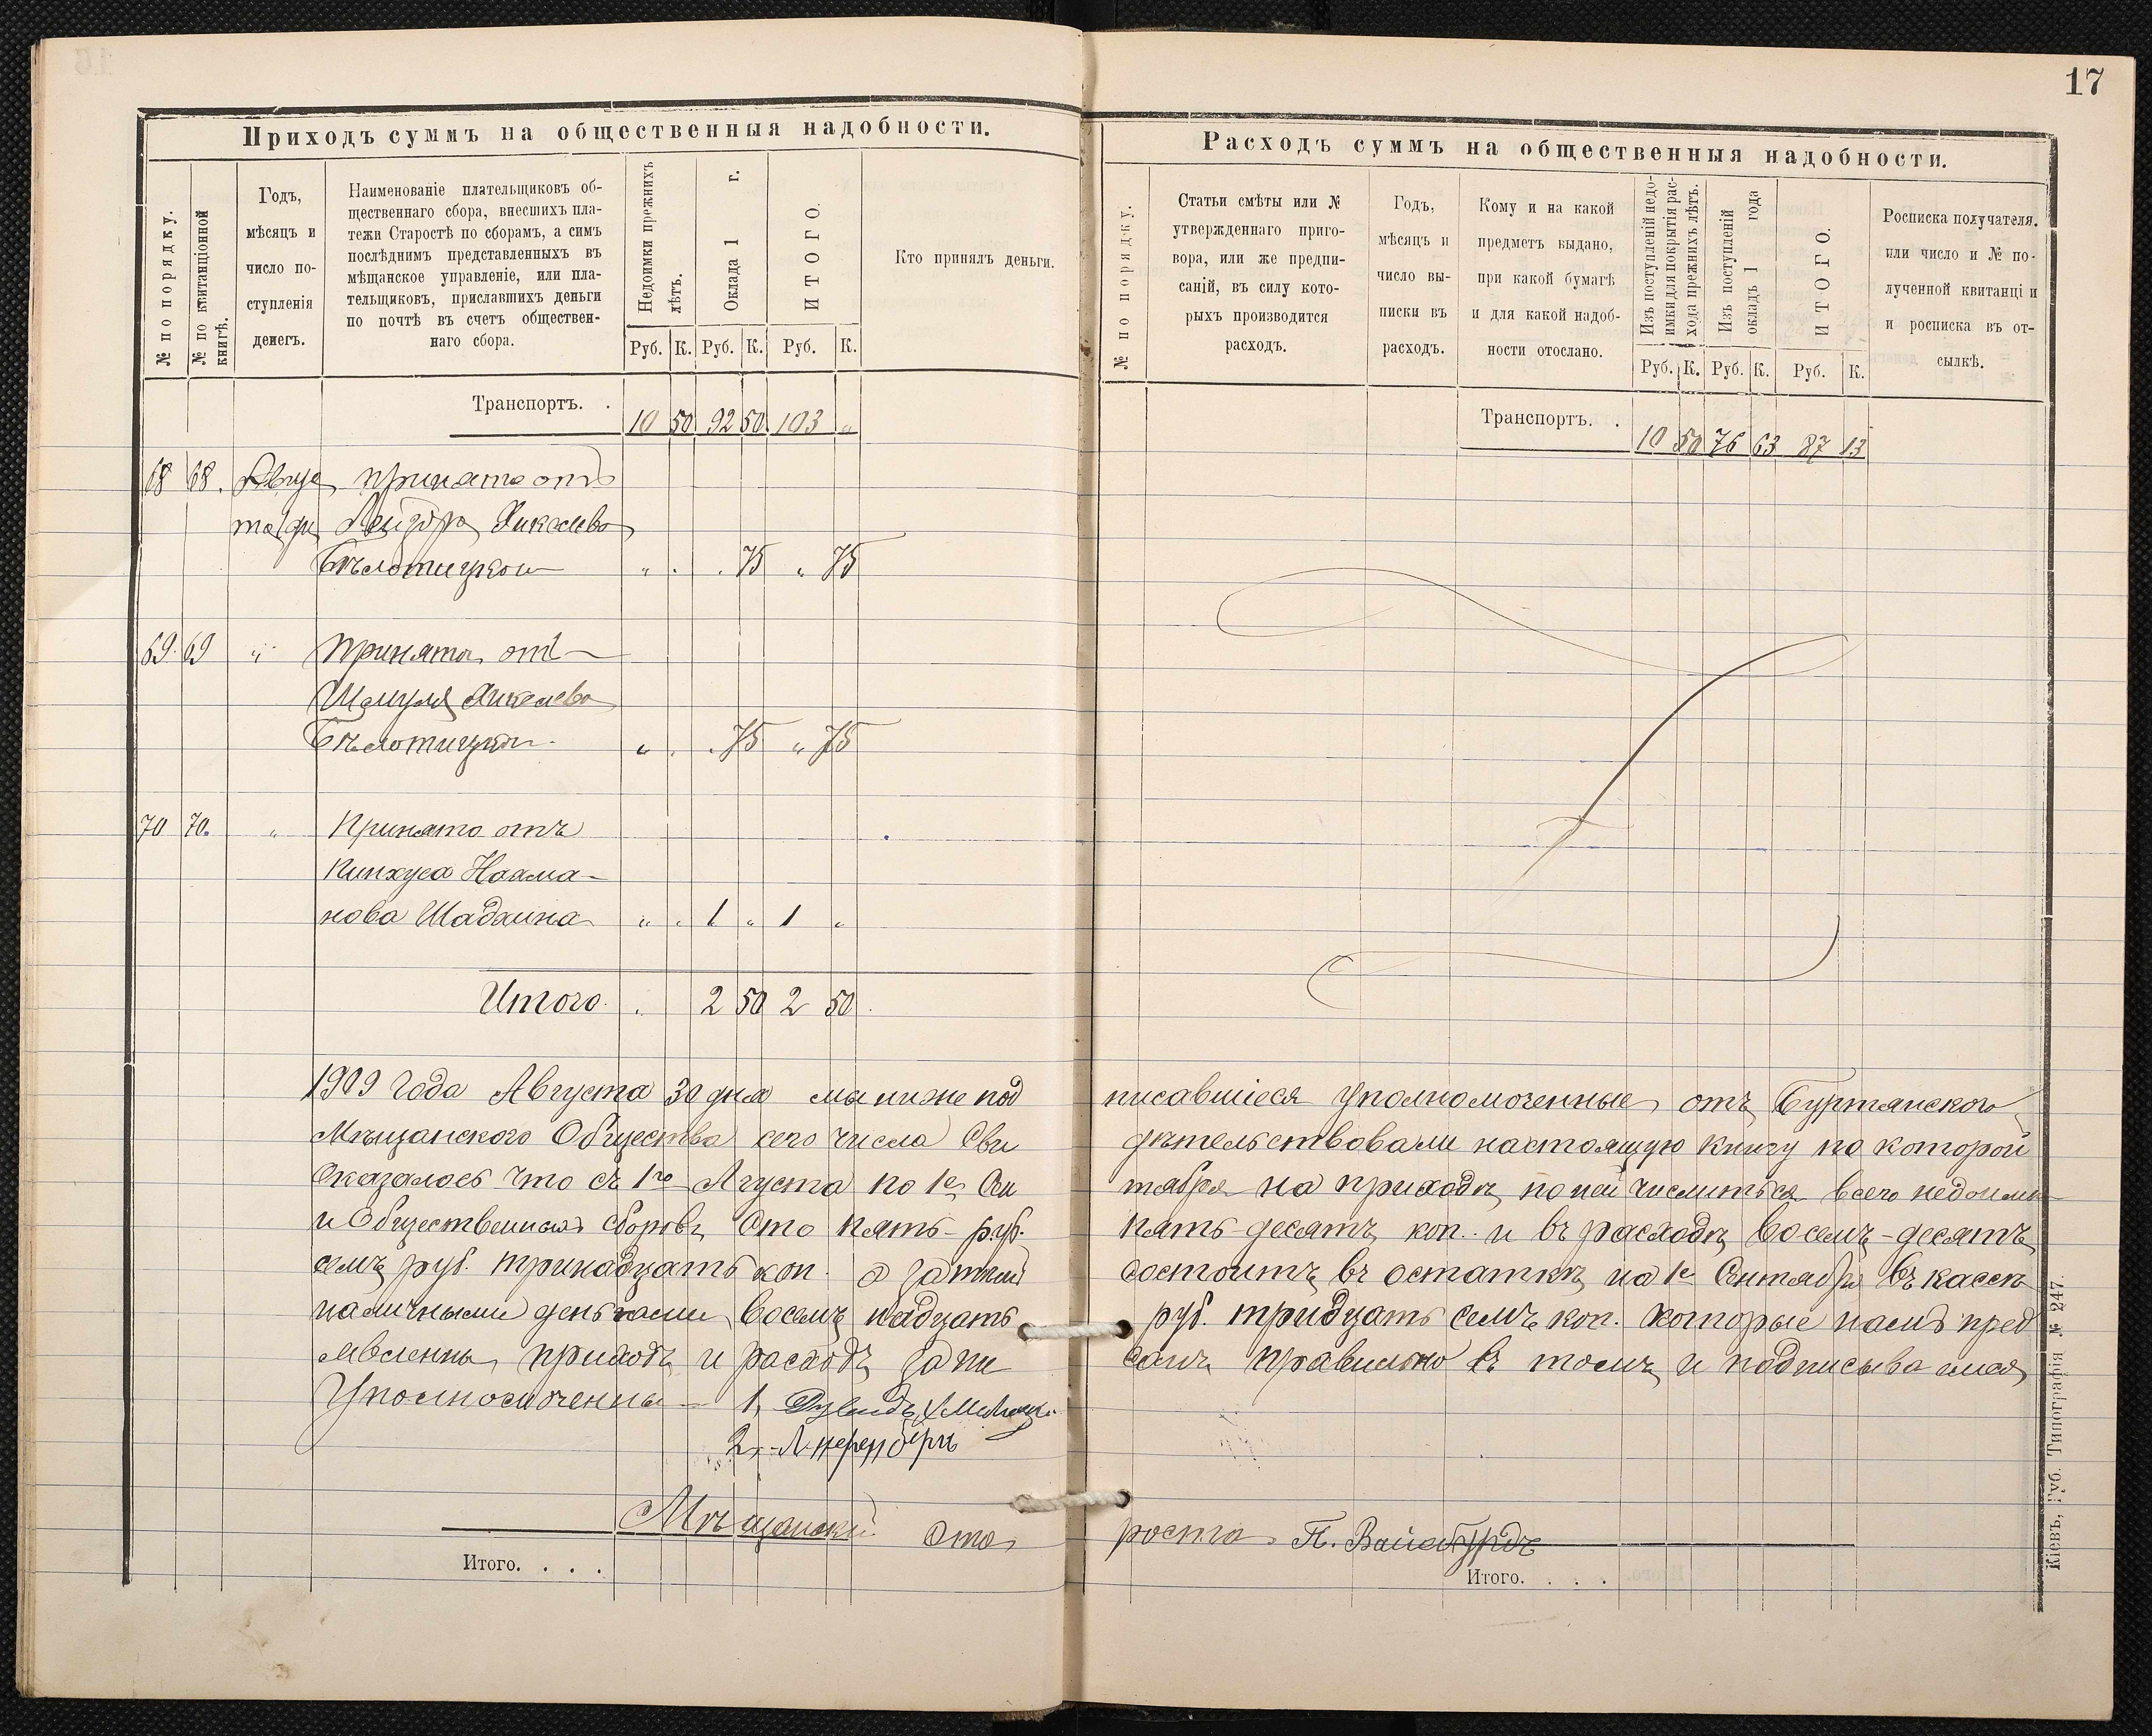 17
Приходъ суммъ на общественныя надобности.
№ по порядку.
№ по квитанціонной книгѣ.
Годъ,
мѣсяцъ и
число по-
ступленія
денегъ.
Наименованіе плательщиковъ об-
щественнаго сбора, внесшихъ пла-
тежи Старостѣ по сборамъ, а симъ
послѣднимъ представленныхъ въ
мѣщанское управленіе, или пла-
тельщиковъ, приславшихъ деньги
по почтѣ въ счетъ обществен-
наго сбора.
Недоимки прежнихъ
лѣтъ.
Оклада 1 г.
ИТОГО.
Кто принялъ деньги.
Руб. К. Руб. К. Руб. К.
Транспортъ. . 10 50 92 50 103 "
68 68. Авгус принято отъ
та
Бѣлотицкого " . . 75 " 75
69. 69 " Принято отъ
Шмуля Янкелева
Бѣлотицкого " . . 75 " 75
70 70. " Принято отъ
Пинхуса Наама-
нова Шадхина " . 1 " 1 "
Итого. . 2 50 2 50.
Итого. . . .
Расходъ суммъ на общественныя надобности.
№ по порядку.
Статьи смѣты или №
утвержденнаго приго-
вора, или же предпи-
саній, въ силу кото-
рыхъ производится
расходъ.
Годъ,
мѣсяцъ и
число вы-
писки въ
расходъ.
Кому и на какой
предметъ выдано,
при какой бумагѣ
и для какой надоб-
ности отослано.
Изъ поступленій недо-
имки для покрытія рас-
хода прежнихъ лѣтъ.
Изъ поступленій
окладъ 1 года
ИТОГО.
Росписка получателя.
или число и № по-
лученной квитанціи
и росписка въ от-
сылкѣ.
Руб. К. Руб. К. Руб. К.
Транспортъ. . 10 50 76 63 87 13
1909 года Августа 30 дня мы ниже под писавшіеся уполномоченные отъ Буртянского
Мѣщанского Общества сего числа Сви дѣтельствовали настоящую книгу по которой
Оказалось что съ 1го Августа по 1е Сен тября на приходъ по ней числиться всего недоимк
и Общественныхъ сборовъ Сто пять руб. пять-десятъ коп. и въ расходъ восемъ-десятъ
семъ руб. тринадцать коп. а затѣмъ состоитъ въ остаткѣ на 1е Сентября въ кассѣ
наличными деньгами восемъ надцать руб. тридцать семъ коп. которые намъ пред
явленны, приходъ и расходъ запи санъ правильно въ томъ и подписываемся
Уполномоченны 1,
2,
Мѣщанскій Ста роста П. Вайсбурдъ
Итого. . . .
Кіевъ, Губ. Типографія № 247.